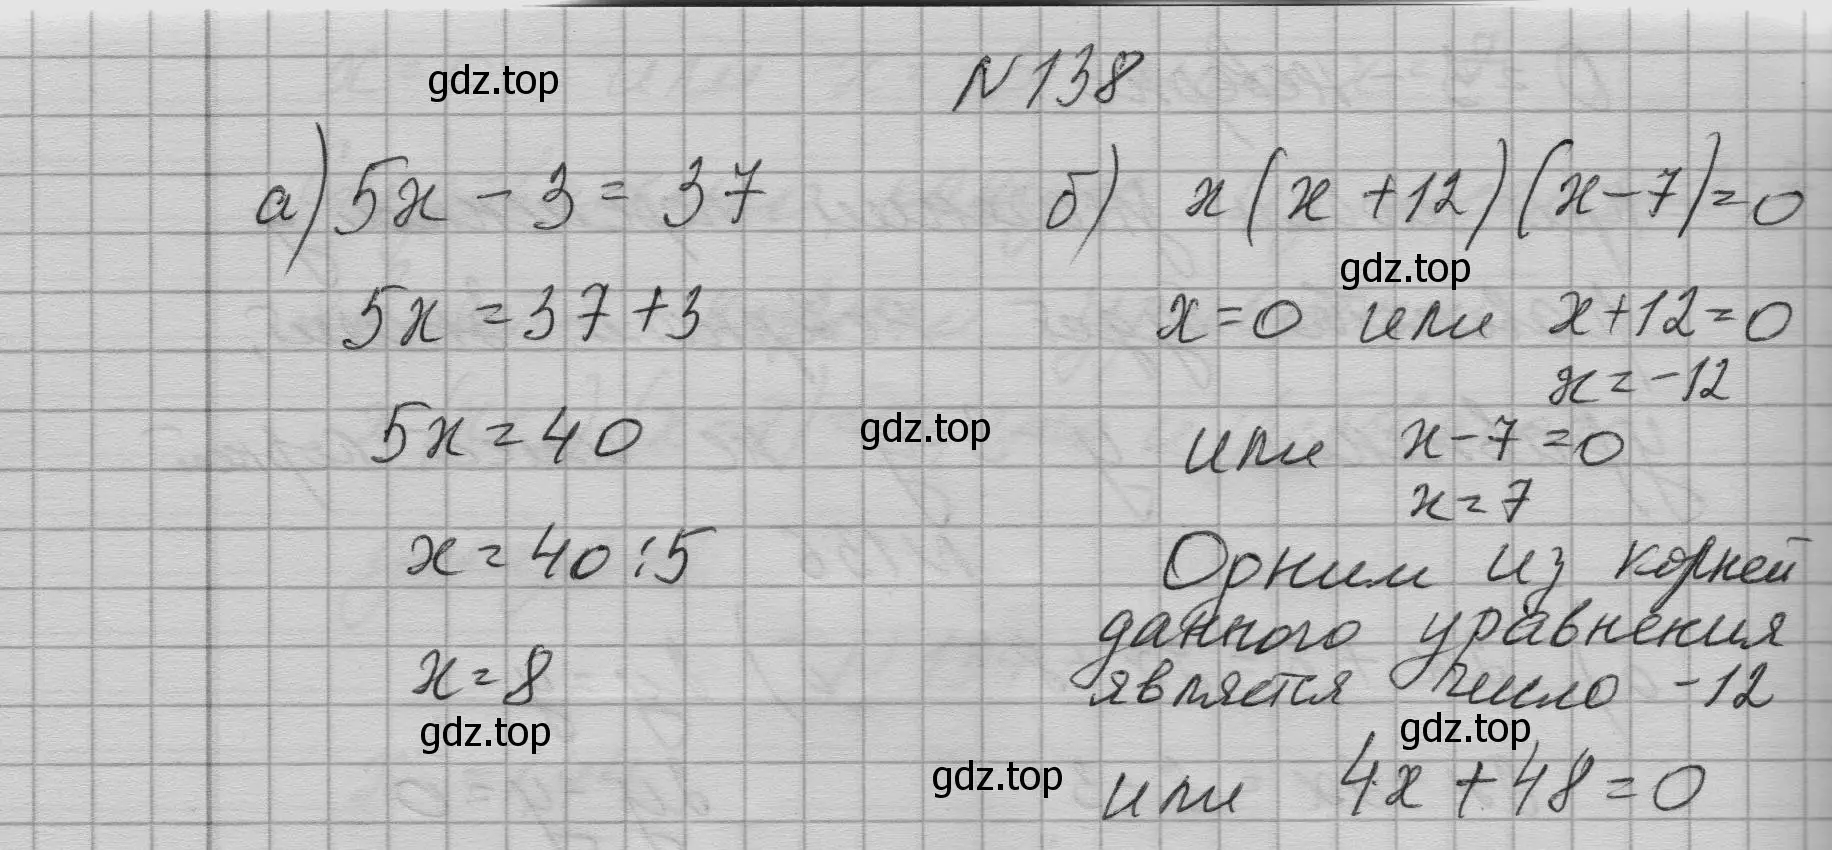 gdz.top
N 138
а) 5x - 3 = 37
5x = 37 + 3
5x = 40
x = 40 : 5
x = 8
gdz.top
б) x(x + 12)(x - 7) = 0
gdz.top
x = 0 или x + 12 = 0
x = -12
gdz.top
или x - 7 = 0
x = 7
Одним из корней
данного уравнения
является число -12
gdz.top
gdz.top
или 4x + 48 = 0